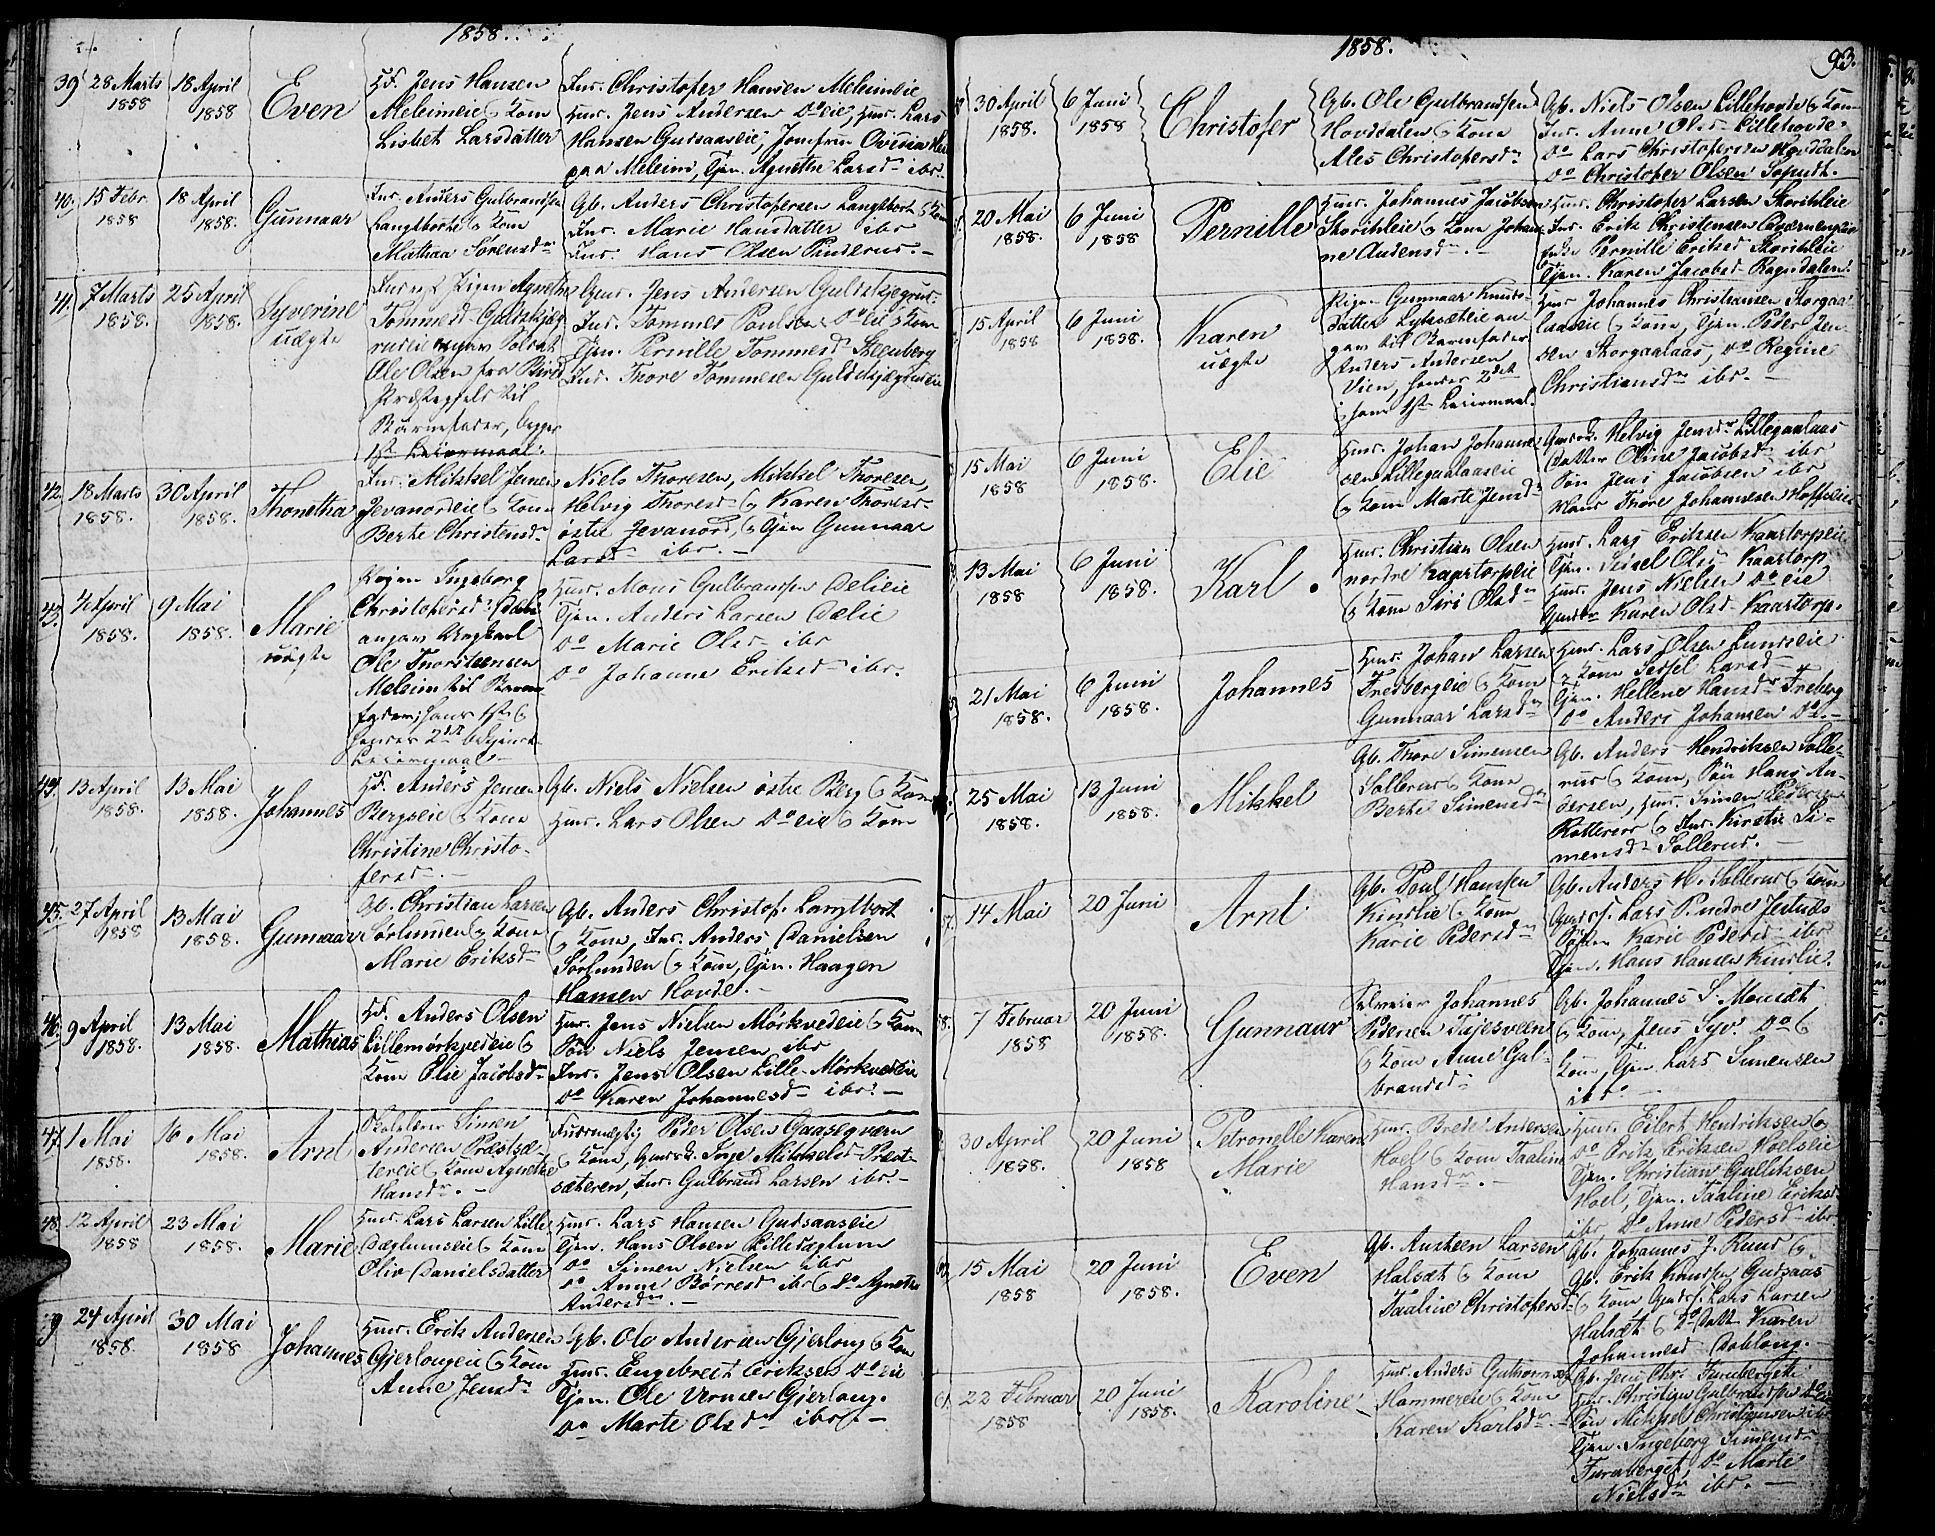 1858.
39 28 Marts 1858 18 April 1858 Even
Hf. Jens Hansen
Meleimeie & Kone
Lisbet Larsdatter
Ins. Christofer Hansen Meleimeie
Huus. Jens Andersen Do eie, Huus. Lars
Hansen Gudsaaseie, Jomfru Ovidia
paa Meleim, Tjen. Agnethe Larsd. ibr.
40. 15 Febr. 1858 18 April 1858. Gunnaar
Ins. Anders Gulbrandsen
Langtborte & Kone
Mathea Sørensdr
Gb. Anders Christofersen Langtbort & Kone
Ins. Marie Hansdatter ibr
Ins. Hans Olsen Panderud. -
41. 7 Marts 1858. 25 April 1858. Syverine uægte
Pigen Agnethe
Tommesd. Guldskjæg-
rueie angav Soldat
Ole Olsen fra Birid
Præstegjeld til
Barnefader, begges
1ste Leiermaal.
Huus. Jens Andersen Guldskjegrue.
Ins. Tommes Poulsen Do eie & Kone
Tjen. Pernille Tommesd. Steenberg
Ins. Thore Tommesen Guldskjægrueeie
42. 18 Marts 1858. 30 April 1858. Thonetha
Ins. Mikkel Jensen
Jevanordeie & Kone
Berte Christensdr
Niels Thoresen, Mikkel Thoresen,
Helvig Thoresd. & Karen Thoresd.
østre Jevanord, & Tjen Gunnaar
Larsd. ibr. -
43. 4 April 1858. 9 Mai 1858. Marie uægte
Pigen Ingeborg
Christofersd. Dæli
angav Ungkarl
Ole Thorsteensen
Meleim til Barne-
fader; hans 1ste &
hendes 2det
Leiermaal -
Huus. Mons Gulbrandsen Dælieie
Tjen. Anders Larsen Dælie
Do Marie Olsd. ibr
Do Johanne Eriksd. ibr.
44. 13 April 1858. 13 Mai 1858. Johannes
Hf. Anders Jensen
Bergseie & Kone
Christine Christo-
fersd. -
Gb. Niels Nielsen østre Berg & Kone
Huus. Lars Olsen Do eie & Kone
45. 27 April 1858 13 Mai 1858. Gunnaar
Gb. Christian Larsen
Sørlunden & Kone
Marie Eriksdr
Gb. Anders Christof. Langtbort
& Kone, Ins. Anders Danielsen
Sørlunden & Kone, Tjen. Haagen
Hansen Hovde. -
46. 9 April 1858. 13 Mai 1858. Mathias
Hf. Anders Olsen
Lillemørkvedeie &
Kone Olie Jacobsdr
Huus. Jens Nielsen Mørkvedeie & Kone
Søn Niels Jensen ibr
Ins. Jens Olsen Lille-Mørkvedeie
Do Karen Johannesd. ibr. -
47. 1 Mai 1858. 16 Mai 1858. Arnt
Skolelærer Simen
Andersen Præstsæ-
tereie & Kone Agnethe
Hansdr. -
Peder Olsen Gaasegværn
& Kone, Inge Mikkelsd. Præst-
sæteren, Ins. Gulbrand Larsen ibr. -
48. 12 April 1858 23 Mai 1858. Marie
Huus. Lars Larsen Lille
Dæglumseie & Kone
Oliv Danielsdatter
Huus. Lars Hansen Gudsaaseie
Tjen. Hans Olsen Lilledæglum
Do Simen Nielsen ibr
Do Anne Børresd. ibr & Do Agnethe
Andersdr. -
49 24 April 1858. 30 Mai 1858 Johannes
Huus. Erik Andersen
Gjerlougeie & Kone
Anne Jensdr
Gb. Ole Andersen Gjerloug & Kone
Huus. Engebregt Eriksen Do eie
Tjen. Ole Gjerloug.
Do Marte Olsdr ibr. -
1858. 93.
30 April 1858. 6 Juni 1858 Christofer
Gb. Ole Gulbrandsen
Hovddalen & Kone
Ales Christofersdr
Gb. Niels Olsen Lillehovde & Kone
Ins. Anne Olsd. Lillehovde
Do Lars Christofersen Hovddalen
Do Christofer Olsen Sopudt.
20 Mai 1858. 6 Juni 1858 Pernille
Huus. Johannes Jacobsen
Skoribleie & Kone Johan-
ne Audensd. -
Huus. Christofer Larsen Skoribleie
Ins. Erik Christensen
Pernille Eriksd. Skoribleie
Tjen. Karen Jacobsd. Ragsdalen.
15 April 1858 6 Juni 1858. Karen uægte
Pigen Gunnaar Knuds-
datter an-
gav til Barnefader
Anders Andersen
Vien, hendes 2det
& hans 1ste Leiermaal.
Huus Johannes Christiansen Storgaa-
laaseie & Kone, Tjen. Peder Jen-
sen Storgaalaas, Do Regine
Christiansdr ibr. -
15 Mai 1858 6 Juni 1858. Elie
Huus. Johan Johanne-
sen Lillegaalaaseie
& Kone Marte Jensdr
Helvig Jensdr Lillegaalaas
Datter Oline Jacobsd. ibr
Søn Jens Jacobsen ibr
Thore Johannesen
13 Mai 1858 6 Juni 1858. Karl
Huus. Christian Olsen
nordre Kaartorpeie
& Kone Siri Olsdr
Huus. Lars Eriksen Kaartorpeie
Tjen. Sissel Olsd. Kaartorp
Huus. Jens Nielsen Do eie
Karen Olsd. Kaartorp.
21 Mai 1858. 6 Juni 1858. Johannes
Huus. Johan Larsen
Fredbergeie & Kone
Gunnaar Larsdr
Huus. Lars Olsen Lundseie
& Kone Sessel Larsd.
Tjen. Hellene Hansdr Freberg
Do Anders Johansen Do. -
25 Mai 1858. 13 Juni 1858. Mikkel
Gb. Thore Simensen
Sollerud & Kone
Berthe Simensdr
Gb. Anders Hendriksen Solle-
rud & Kone, Søn Hans An-
dersen, Huus. Simen Pedersen
& Ins. Kirstie Si-
mensdr Sollerud. -
57. 14 Mai 20 Juni Arnt
Gb. Poul Hansen
Kindlie & Kone
Karie Pedersdr
Gb. Anders H. Sollerud & Kone
Lars P. nedre
Karie Pedersd. ibr
Tjen. Hans Hansen Kindlie.
58. 7 Februar 1858 20 Juni 1858. Gunnaur
Selveier Johannes
Pedersen Tajesveen
& Kone Anne Gul-
brandsdr
Gb. Johannes S. Monsæt
& Kone, Jens Syv. Do &
Kone, Tjen. Lars Simensen
ibr. -
30 April 1858. 20 Juni 1858 Petronelle Karen Marie
Huus. Brede Andersen
Hoel & Kone Taaline
Hansdr. -
Huus. Eilert Hendriksen &
Do Erik Eriksen Hoelseie
Tjen. Christian Gulliksen
Hoel, Tjen. Taaline Eriksd.
ibr. Do Anne Pedersd. ibr
15 Mai 1858 20 Juni 1858. Even
Gb. Austeen Larsen
Halsæt & Kone
Taaline Christofersdr
Gb. Johannes J. Ruud &
Gb. Erik Knudsen Gudsaas
& Kone Lars Larsen
Halsæt & Karen
Johannesd. Doblong. -
61. 22 Februar 1858 20 Juni 1858. Karoline
Huus. Anders Guttormsen
Hammereie & Kone
Karen Karlsdr. -
Gb. Jens Chr. Furuberget
Huus. Christian Gulbrandsen Do eie
Søn Mikkel Christiansen ibr
Tjen. Ingeborg Simensdr
Furuberget, Do Marte
Nielsdr ibr. -